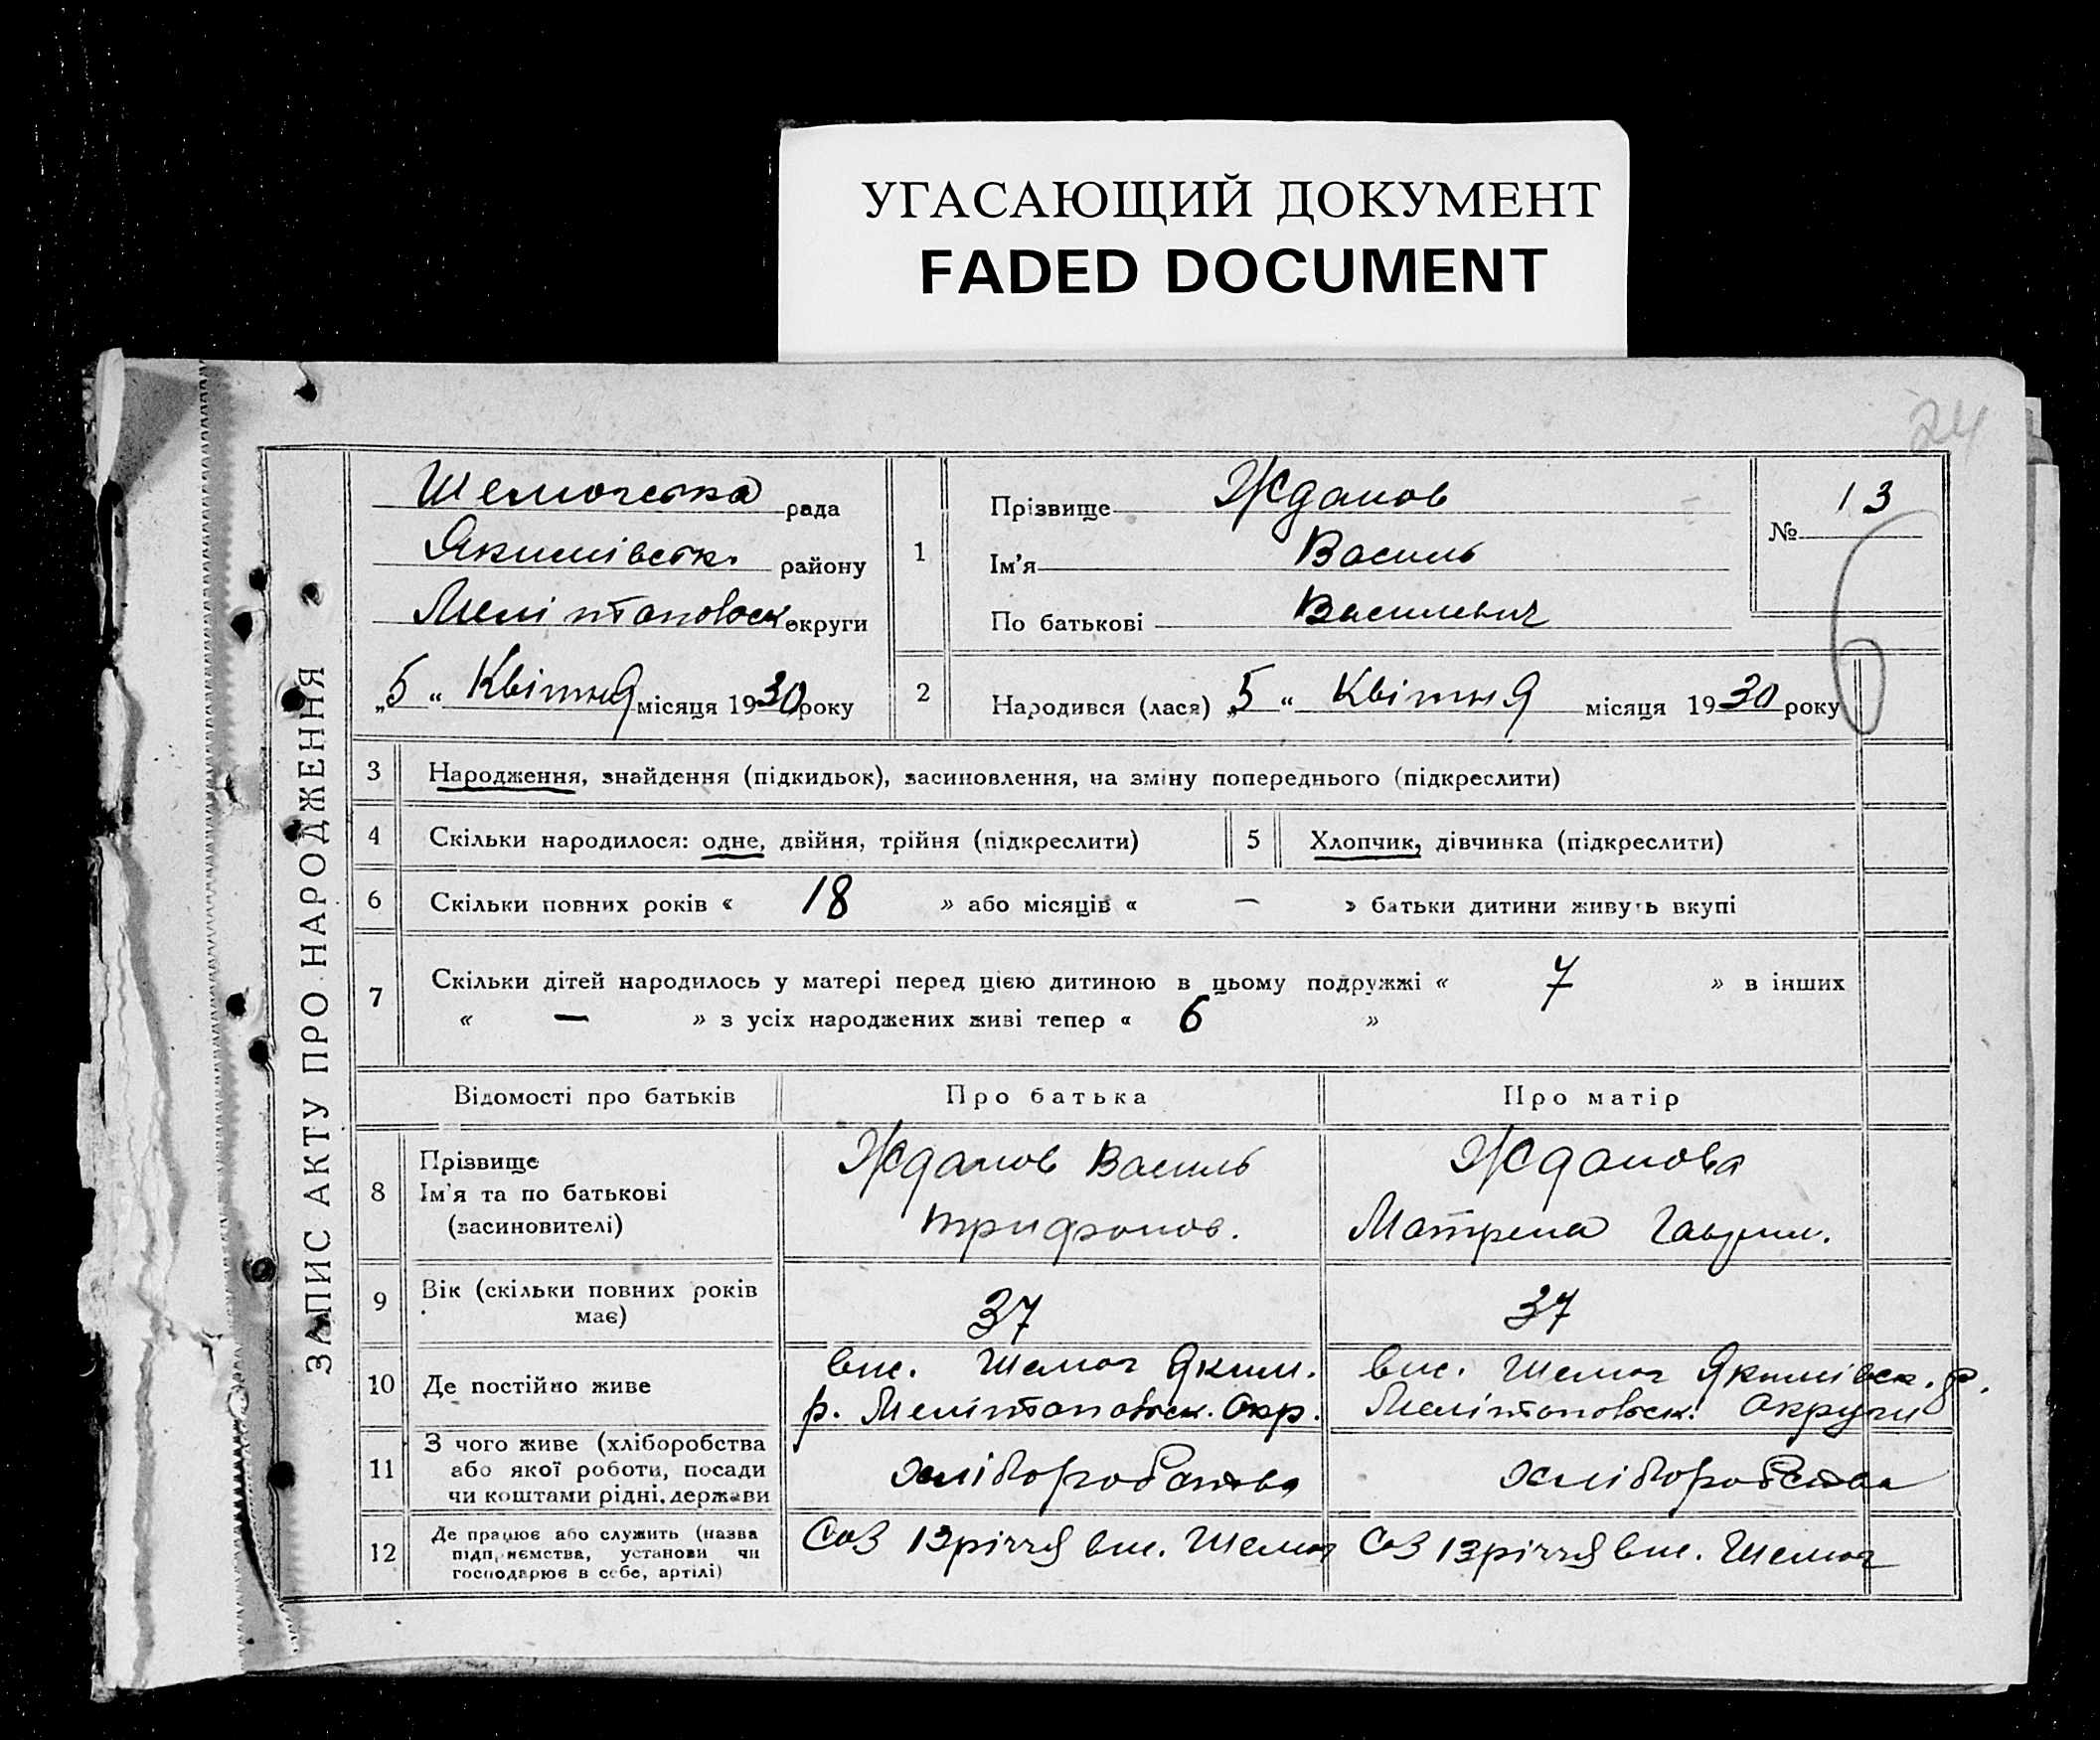 УГАСАЮЩИЙ ДОКУМЕНТ
FADED DOCUMENT
24
ЗАПИС АКТУ ПРО НАРОДЖЕННЯ
Шемочська рада
Якимівськ. району
Мелітопольськ округи
„5“ Квітня місяця 1930 року
1
Прізвище Жданов
Ім'я Василь
По батькові Василевич
№ 13
2
Народився (лася) „5“ Квітня місяця 1930 року
3 Народження, знайдення (підкидьок), засиновлення, на зміну попереднього (підкреслити)
4 Скільки народилося: одне, двійня, трійня (підкреслити)
5 Хлопчик, дівчинка (підкреслити)
6 Скільки повних років « 18 » або місяців « — » батьки дитини живуть вкупі
7 Скільки дітей народилось у матері перед цією дитиною в цьому подружжі « 7 » в інших
« — » з усіх народжених живі тепер « 6 »
Відомості про батьків Про батька Про матір
8 Прізвище
Ім'я та по батькові
(засиновителі)
Жданов Василь
Трифонов.
Жданова
Матрена Гаврил.
9 Вік (скільки повних років
має)
37
37
10 Де постійно живе
вис. Шемоч Яким.
р. Мелітопольськ. Окр.
вис. Шемоч Якимівськ. р.
Мелітопольськ. Округи
11 З чого живе (хліборобства
або якої роботи, посади
чи коштами рідні, держави
хліборобства
хліборобства
12 Де працює або служить (назва
підприємства, установи чи
господарює в себе, артілі)
Соз 12річчя вис. Шемоч
Соз 12річчя вис. Шемоч